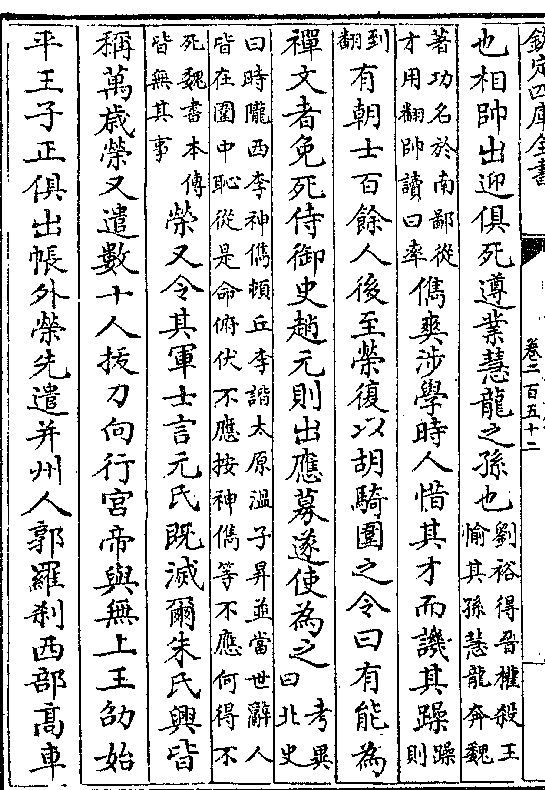 欽定四庫全書
卷二百五十二
也相帥出迎俱死遵業慧龍之孫也劉裕得晉權殺王愉其孫慧龍奔魏
著功名於南鄙從才用翻帥讀曰率儁爽涉學時人惜其才而譏其躁躁則
到翻有朝士百餘人後至榮復以胡騎圍之令曰有能為
禪文者免死侍御史趙元則出應募遂使為之考異曰北史
曰時隴西李神儁頓丘李諧太原溫子昇並當世辭人皆在圍中恥從是命俯伏不應按神儁等不應何得不
死魏書本傳皆無其事榮又令其軍士言元氏既滅爾朱氏興皆
稱萬歲榮又遣數十人拔刀向行宮帝與無上王劭始
平王子正俱出帳外榮先遣并州人郭羅刹西部高車